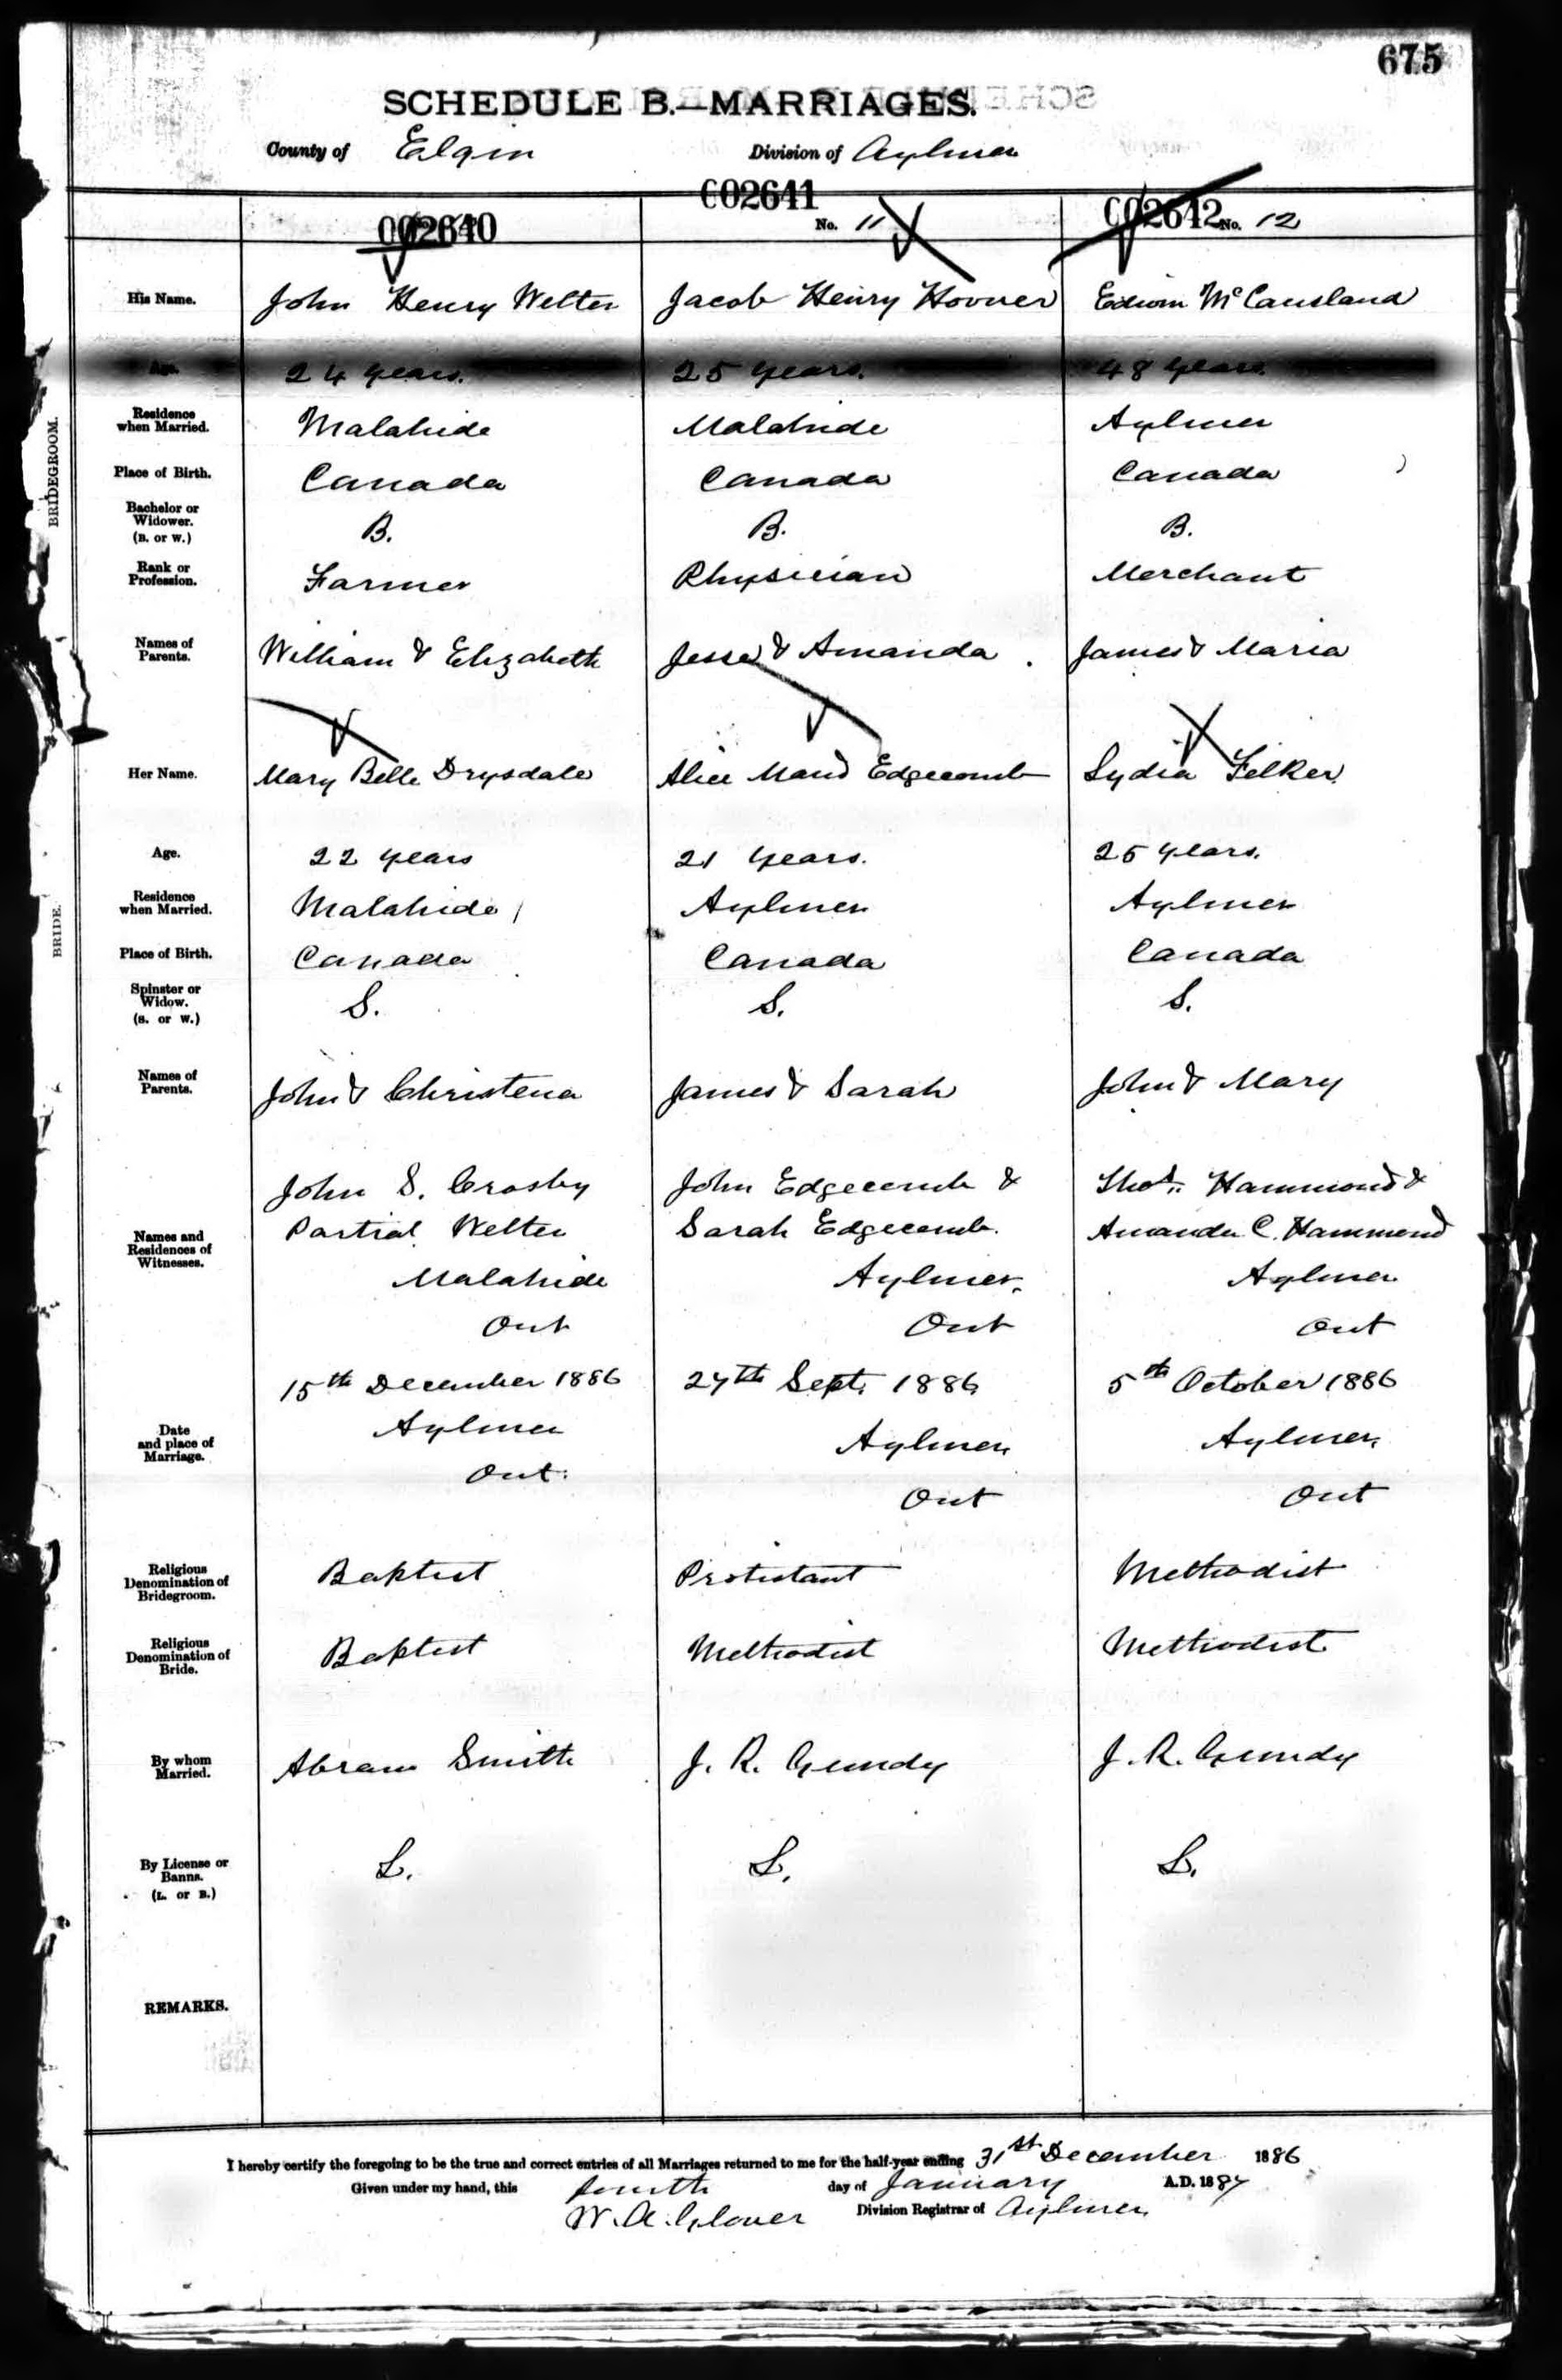 675
SCHEDULE B.—MARRIAGES.
County of Elgin Division of Aylmer
002640 C02641 No. 11 C02642 No. 12
His Name. John Henry Welter Jacob Henry Hoover Edwin McCausland
Age. 24 years. 25 years. 48 years.
BRIDEGROOM.
Residence when Married. Malahide Malahide Aylmer
Place of Birth. Canada Canada Canada
Bachelor or Widower. (B. or W.) B. B. B.
Rank or Profession. Farmer Physician Merchant
Names of Parents. William & Elizabeth Jesse & Amanda James & Maria
Her Name. Mary Belle Drysdale Alice Maud Edgecomb Lydia Felker
Age. 22 years 21 years. 25 years.
BRIDE.
Residence when Married. Malahide Aylmer Aylmer
Place of Birth. Canada Canada Canada
Spinster or Widow. (S. or W.) S. S. S.
Names of Parents. John & Christena James & Sarah John & Mary
John S. Crosby John Edgecomb & Thos. Hammond &
Names and Residences of Witnesses. Welter Sarah Edgecomb. Amanda C. Hammond
Malahide Aylmer. Aylmer
Ont Ont Ont
15th December 1886 27th Sept. 1886 5th October 1886
Date and place of Marriage. Aylmer Aylmer Aylmer
Ont. Ont Ont
Religious Denomination of Bridegroom. Baptist Protestant Methodist
Religious Denomination of Bride. Baptist Methodist Methodist
By whom Married. Abram Smith J. R. Gundy J. R. Gundy
By License or Banns. (L. or B.) L. L. L.
REMARKS.
I hereby certify the foregoing to be the true and correct entries of all Marriages returned to me for the half-year ending 31st December 1886
Given under my hand, this fourth day of January A.D. 1887
W. A. Glover Division Registrar of Aylmer